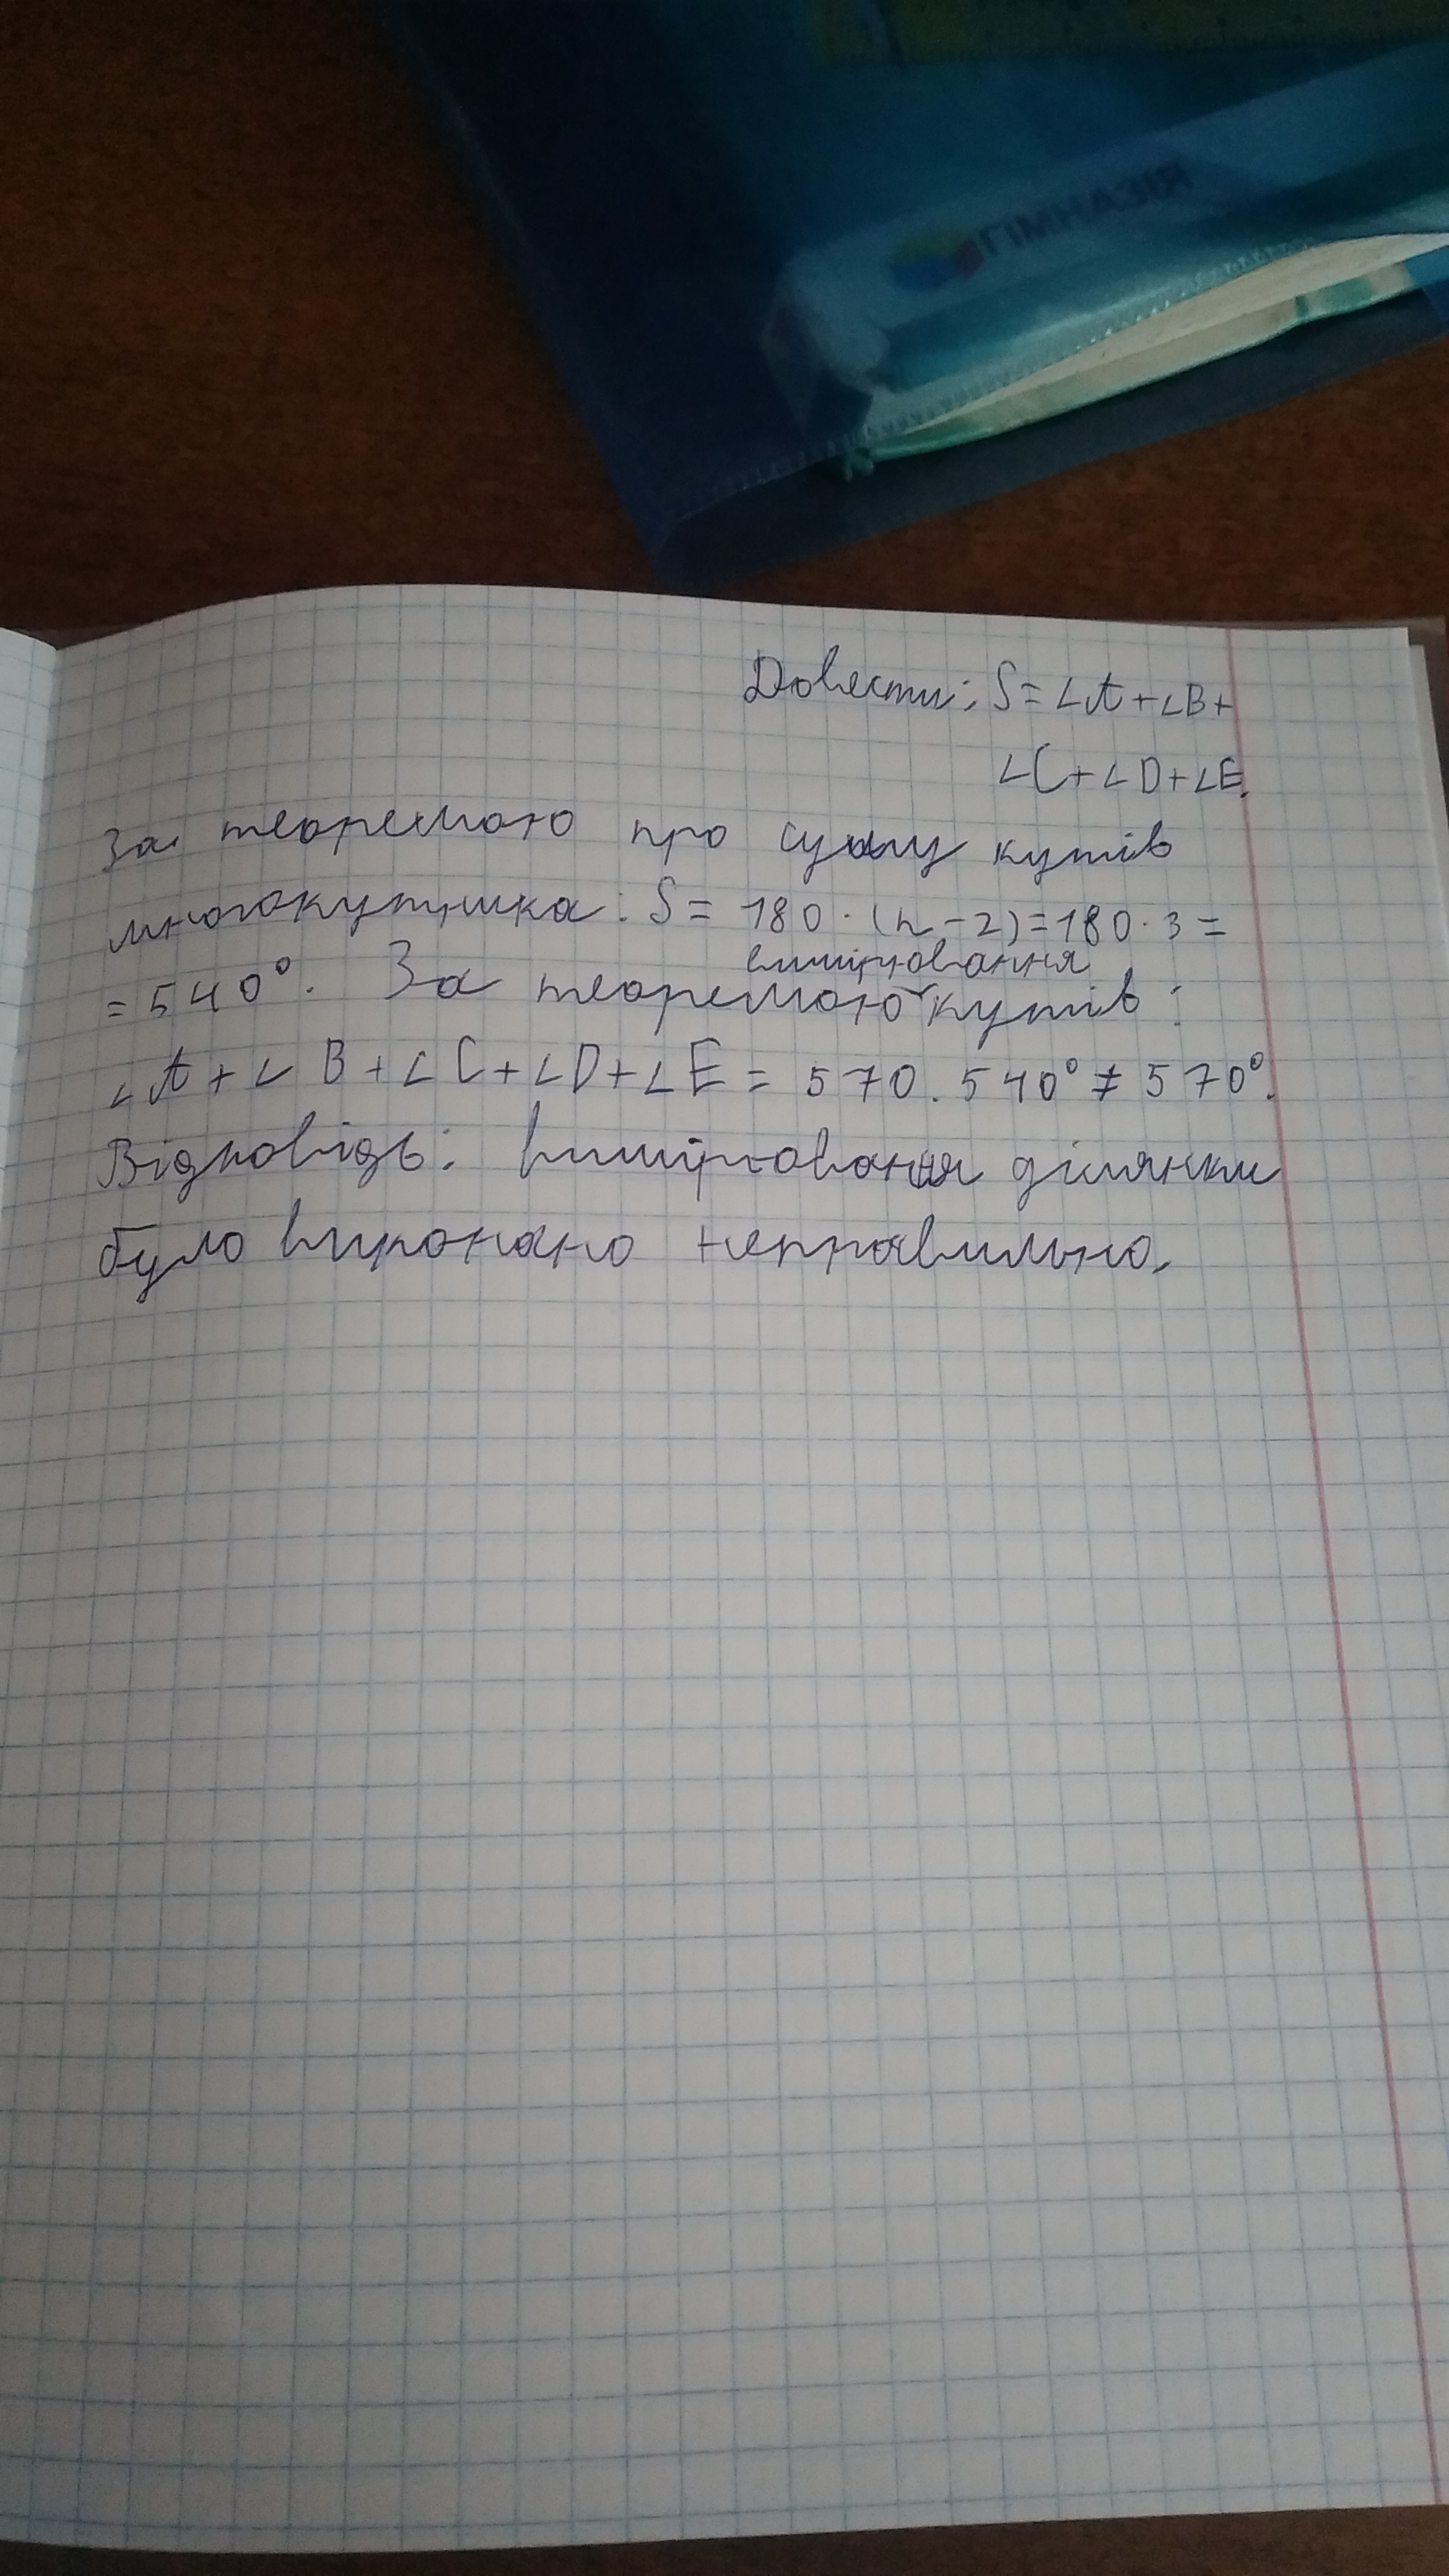 ГІМНАЗІЯ
Довести: S = ∠A + ∠B +
∠C + ∠D + ∠E.
За теоремою про суму кутів
многокутника: S = 180 · (n - 2) = 180 · 3 =
вимірювання
= 540°. За теоремою кутів:
∠A + ∠B + ∠C + ∠D + ∠E = 570. 540° ≠ 570°.
Відповідь: вимірювання ділянки
було виконано неправильно.